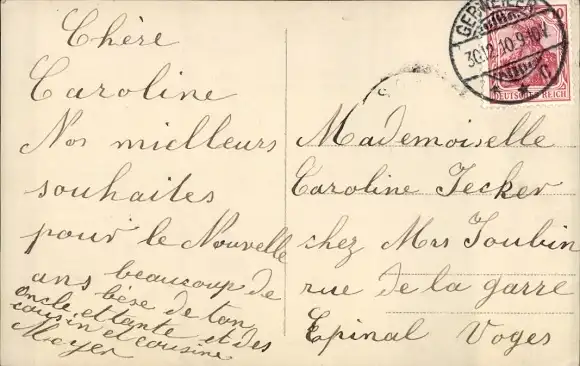 Chère
Caroline
Nos mielleurs
souhaites
pour le Nouvelle
ans beaucoup de
bése de ton
oncle et tante et des
cousin et cousine
Meyer
Mademoiselle
Caroline Jecker
chez Mrs Joubin
rue de la garre
Epinal Voges
GEBWEILER
30.12.10.9-10V
DEUTSCHES REICH
10